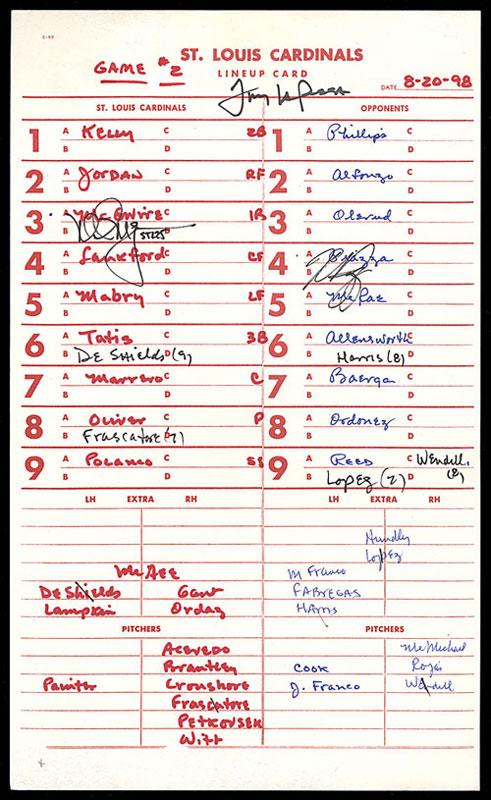 C-59
ST. LOUIS CARDINALS
GAME #2
LINEUP CARD
Tony La Russa
DATE 8-20-98
ST. LOUIS CARDINALS OPPONENTS
1 A Kelly C 2B 1 A Phillips C
B D B D
2 A Jordan C RF 2 A Alfonzo C
B D B D
3 A McGwire C 1B 3 A Olerud C
B ST25 D B D
4 A Lankford C CF 4 A Piazza C
B D B D
5 A Mabry C LF 5 A McRae C
B D B D
6 A Tatis C 3B 6 A Allensworth C
B DeShields (9) D B Harris (8) D
7 A Marrero C C 7 A Baerga C
B D B D
8 A Oliver C P 8 A Ordonez C
B Frascatore (7) D B D
9 A Polanco C SS 9 A Reed C Wendell
B D B Lopez (7) D (8)
LH EXTRA RH LH EXTRA RH
Hundley
Lopez
McGee M Franco
DeShields Gant FABREGAS
Lampkin Ordaz HARRIS
PITCHERS PITCHERS
Acevedo McMichael
Brantley Cook Rojas
Painter Croushore J. Franco Wendell
Frascatore
Petkovsek
Witt